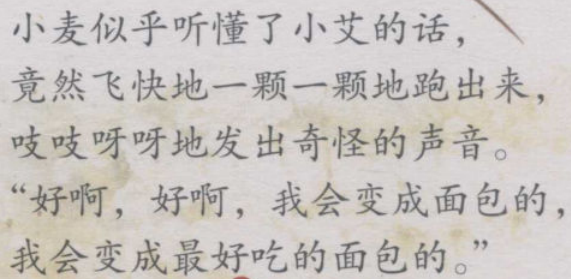 小麦似乎听懂了小艾的话，
竟然飞快地一颗一颗地跑出来，
吱吱呀呀地发出奇怪的声音。
“好啊，好啊，我会变成面包的，
我会变成最好吃的面包的。”